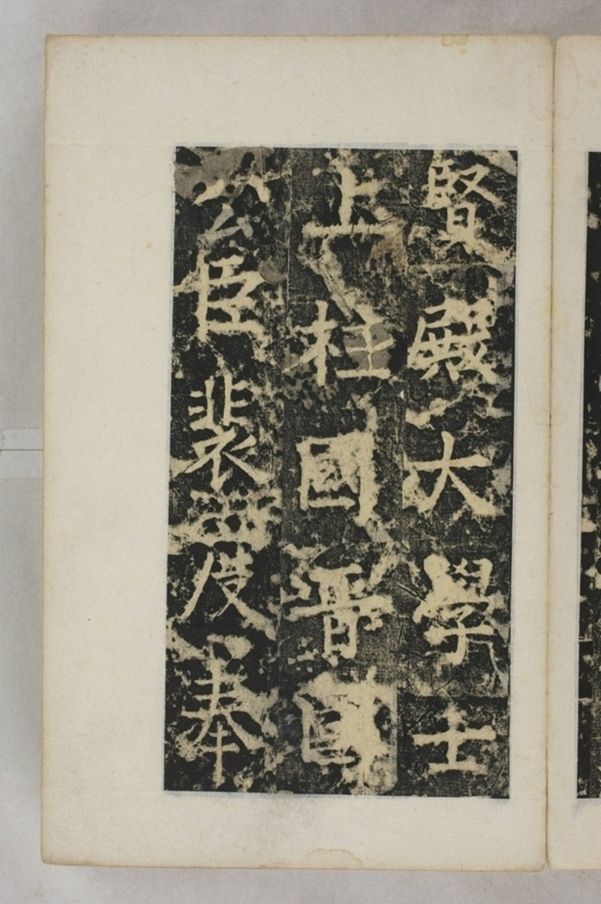 賢殿大學士
上柱國晉國
公臣裴度奉